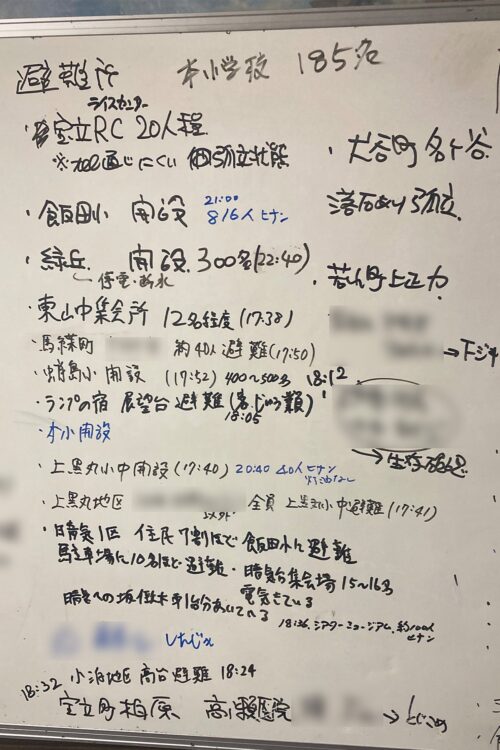 避難所 本小学校 185名
ライスセンター
・宝立RC 20人程
※TEL通じにくい 個別孤立状態
・大谷町 各ヶ谷
落石あり 孤立
・飯田小 開設 21:00 816人ヒナン
・緑丘 開設 300名(22:40)
停電・断水
・若山町上正力
・東山中集会所 12名程度(17:38)
・馬緤町 約40人避難(17:50)
→下ジキ
・蛸島小開設 (17:52) 400〜500名 18:12
・ランプの宿 展望台避難
18:05
・本小開設
→生存確認
・上黒丸小中開設(17:40) 20:40 40人ヒナン
灯油なし
・上黒丸地区 以外 全員 上黒丸小中避難(17:41)
・晴気1区 住民7割ほど 飯田小に避難
駐車場に10名ほど避難・晴気台集会場15〜16名
電気きている
晴気への坂 低木車1台分あいてる
18:36、シアターミュージアム、約100人
ヒナン
18:32 小泊地区 高台避難 18:24
宝立町柏原 高瀬医院 →とじこめ